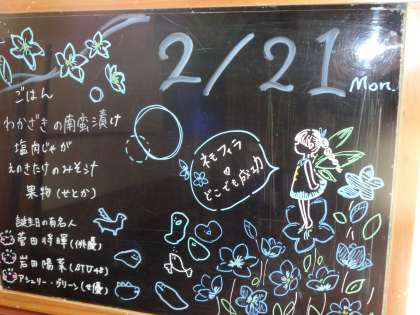 2/21
Mon.
ごはん
わかさぎの南蛮漬け
塩肉じゃが
えのきたけのみそ汁
果物(せとか)
ネモフィラ
どこでも
誕生日の有名人
菅田将暉(俳優)
岩田陽菜(STU48)
アシュリー・グリーン(女優)